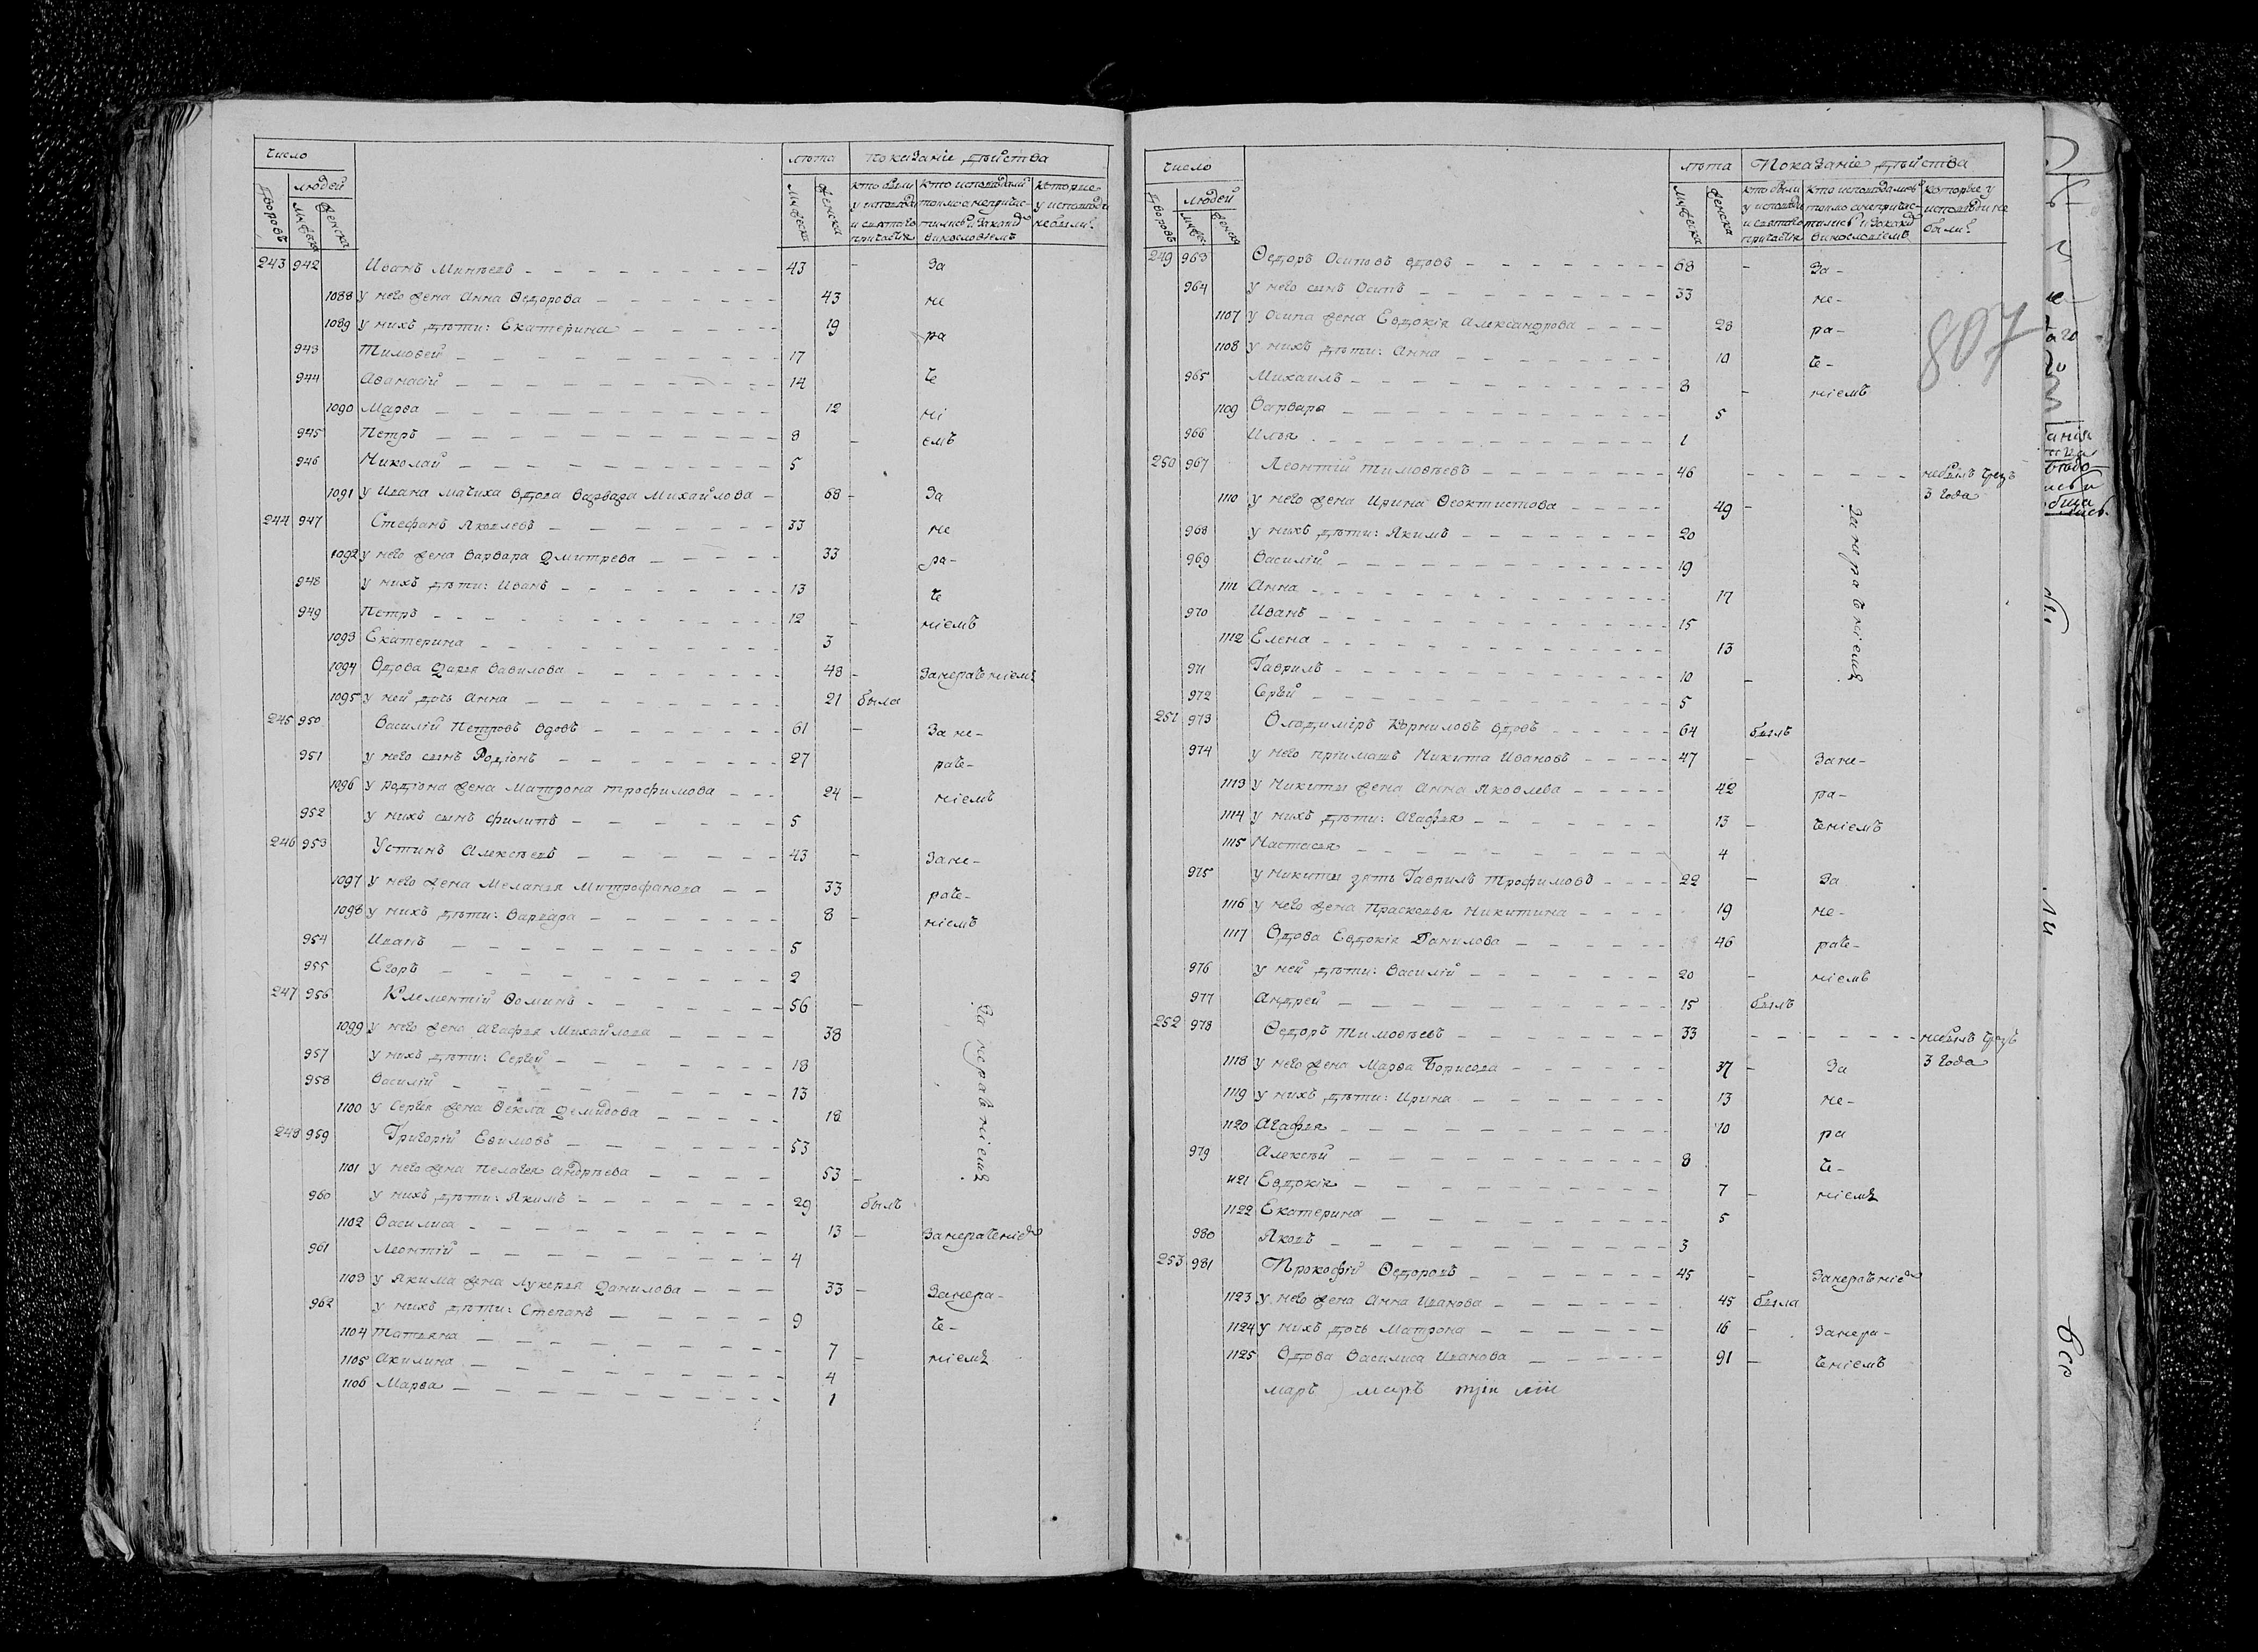 число
лѣта Показаніе дѣйства
Дворовъ людей
мужеска женска
мужеска женска
кто были у исповѣди и святаго причастія
кто исповѣдались токмо а непричастились и за какимъ винословіемъ
которые у исповѣди не были?
243 942 Иванъ Минѣевъ 43 - За
1088 у него жена Анна Ѳедорова 43 не
1089 у нихъ дѣти: Екатерина 19 ра
943 Тимоѳей 17
944 Аѳанасій 14 че
1090 Марѳа 12 ні
945 Петръ 8 - емъ
946 Николай 5
1091 у Ивана мачиха вдова Варвара Михайлова 68 - За
244 947 Стефанъ Яковлевъ 33 не
1092 у него жена Варвара Дмитрева 33 ра-
948 у нихъ дѣти: Иванъ 13 че
949 Петръ 12 - ніемъ
1093 Екатерина 3
1094 Вдова Дарья Вавилова 48 - Занераченіемъ
1095 у ней дочь Анна 21 была
245 950 Василій Петровъ вдовъ 61 - За не-
951 у него сынъ Родіонъ 27 раче-
1096 у Родіона жена Матрона Трофимова 24 - ніемъ
952 у нихъ сынъ Филипъ 5
246 953 Устинъ Алексѣевъ 43 - Зане-
1097 у него жена Меланья Митрофанова 33 раче-
1098 у нихъ дѣти: Варвара 8 - ніемъ
954 Иванъ 5
955 Егоръ 2
247 956 Клементій Ѳоминъ 56 - За нераченіемъ
1099 у него жена Агафья Михайлова 38
957 у нихъ дѣти: Сергей 18
958 Василій 13
1100 у Сергея жена Ѳекла Демидова 18
248 959 Григорій Ефимовъ 53
1101 у него жена Пелагея Андрѣева 53 -
960 у нихъ дѣти: Якимъ 29 былъ
1102 Василиса 13 - Занераченіемъ
961 Леонтій 4
1103 у Якима жена Лукерья Данилова 33 - Занера-
962 у нихъ дѣти: Степанъ 9 че-
1104 Татьяна 7 - ніемъ
1105 Акилина 4
1106 Марѳа 1
число
лѣта Показаніе дѣйства
Дворовъ людей
мужес. женска
мужеска женска
кто были у исповѣди и святаго причастія
кто исповѣдались токмо а непричастились и за какимъ винословіемъ
которые у исповѣди не были?
807
249 963 Ѳедоръ Осиповъ вдовъ 68 - За-
964 у него сынъ Осипъ 33 не-
1107 у Осипа жена Евдокія Александрова 28 ра-
1108 у нихъ дѣти: Анна 10 че-
965 Михаилъ 8 - ніемъ
1109 Варвара 5
966 Илья 1
250 967 Леонтій Тимоѳѣевъ 46 небылъ чрезъ
3 года
1110 у него жена Ирина Ѳеоктистова 49 - За нераченіемъ
968 у нихъ дѣти: Якимъ 20
969 Василій 19
1111 Анна 17
970 Иванъ 15
1112 Елена 13
971 Гаврилъ 10 -
972 Сергей 5
251 973 Владиміръ Корниловъ вдовъ 64 былъ
974 у него пріимашъ Никита Ивановъ 47 - Зане-
1113 у Никиты жена Анна Яковлева 42 ра-
1114 у нихъ дѣти: Агафья 13 - ченіемъ
1115 Настасья 4
975 у Никиты зять Гаврилъ Трофимовъ 22 - За
1116 у него жена Прасковья Никитина 19 не-
1117 Вдова Евдокія Данилова 46 раче-
976 у ней дѣти: Василій 20 - ніемъ
977 Андрей 15 былъ
252 978 Ѳедоръ Тимоѳѣевъ 33 небылъ чрезъ
3 года
1118 у него жена Марѳа Борисова 37 - За
1119 у нихъ дѣти: Ирина 13 не-
1120 Агафья 10 ра
979 Алексѣй 8 че-
1121 Евдокія 7 - ніемъ
1122 Екатерина 5
980 Яковъ 3
253 981 Прокофій Ѳедоровъ 45 - Занераченіемъ
1123 у него жена Анна Иванова 45 была
1124 у нихъ дочь Матрона 16 - Занера-
1125 Вдова Василиса Иванова 91 - ченіемъ